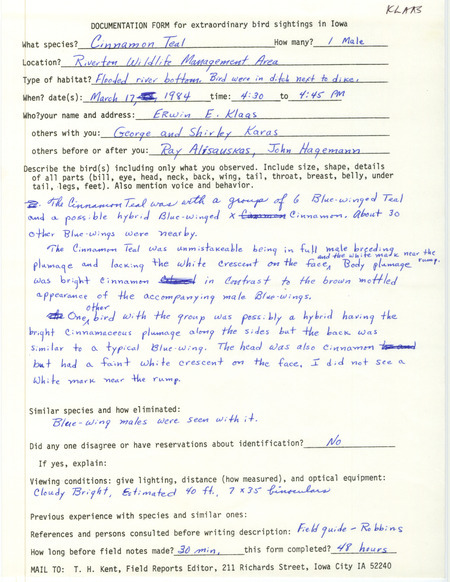 KLAAS
DOCUMENTATION FORM for extraordinary bird sightings in Iowa
What species? Cinnamon Teal How many? 1 Male
Location? Riverton Wildlife Management Area
Type of habitat? Flooded river bottom. Bird were in ditch next to dike.
When? date(s): March 17, 1984 time: 4:30 to 4:45 PM
Who?your name and address: Erwin E. Klaas
others with you: George and Shirley Karas
others before or after you: Ray Alisauskas, John Hagemann
Describe the bird(s) including only what you observed. Include size, shape, details
of all parts (bill, eye, head, neck, back, wing, tail, throat, breast, belly, under
tail, legs, feet). Also mention voice and behavior.
The Cinnamon Teal was with a group of 6 Blue-winged Teal
and a possible hybrid Blue-winged x Cinnamon. About 30
other Blue-wings were nearby.
The Cinnamon Teal was unmistakeable being in full male breeding
plumage and lacking the white crescent on the face and the white mark near the rump. Body plumage
was bright cinnamon in contrast to the brown mottled
appearance of the accompanying male Blue-wings.
One other bird with the group was possibly a hybrid having the
bright cinnamaceous plumage along the sides but the back was
similar to a typical Blue-wing. The head was also cinnamon
but had a faint white crescent on the face. I did not see a
white mark near the rump.
Similar species and how eliminated:
Blue-wing males were seen with it.
Did any one disagree or have reservations about identification? No
If yes, explain:
Viewing conditions: give lighting, distance (how measured), and optical equipment:
Cloudy Bright, Estimated 40 ft, 7 x 35 binoculars
Previous experience with species and similar ones:
References and persons consulted before writing description: Field guide - Robbins
How long before field notes made? 30 min, this form completed? 48 hours
MAIL TO: T. H. Kent, Field Reports Editor, 211 Richards Street, Iowa City IA 52240